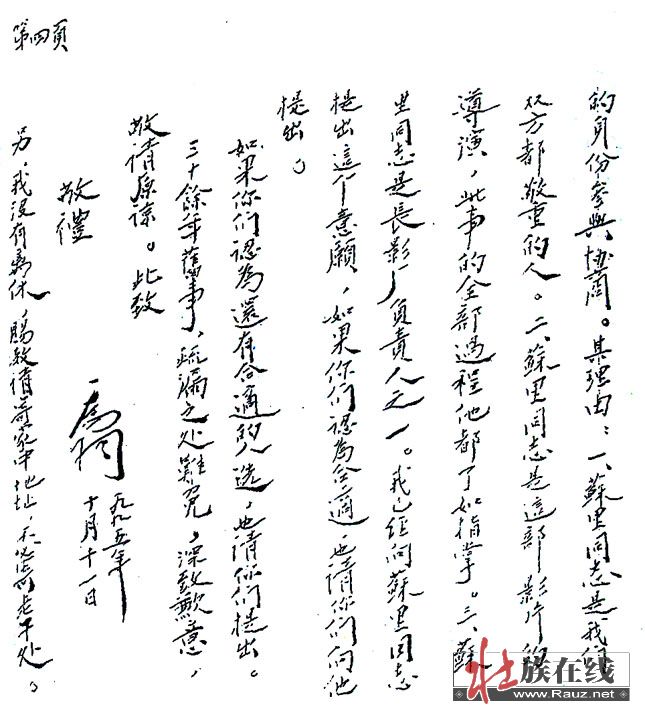 第四頁
的身份参與协商。其理由：一、蘇里同志是我们
双方都敬重的人。二、蘇里同志是這部影片的
導演，此事的全部過程他都了如指掌。三、蘇
里同志是長影厂負責人之一。我已经向蘇里同志
提出這个意願，如果你们認為合適，也請你们向他
提出。
如果你们認為還有合適的人选，也請你们提出。
三十餘年舊事，疏漏之处難免，深致歉意，
敬請原諒。此致
敬禮
喬羽
一九九五年
十月十一日
另，我没有离休，賜教請寄家中地址，不必寄老干处。
壮族在线
www.Rauz.net